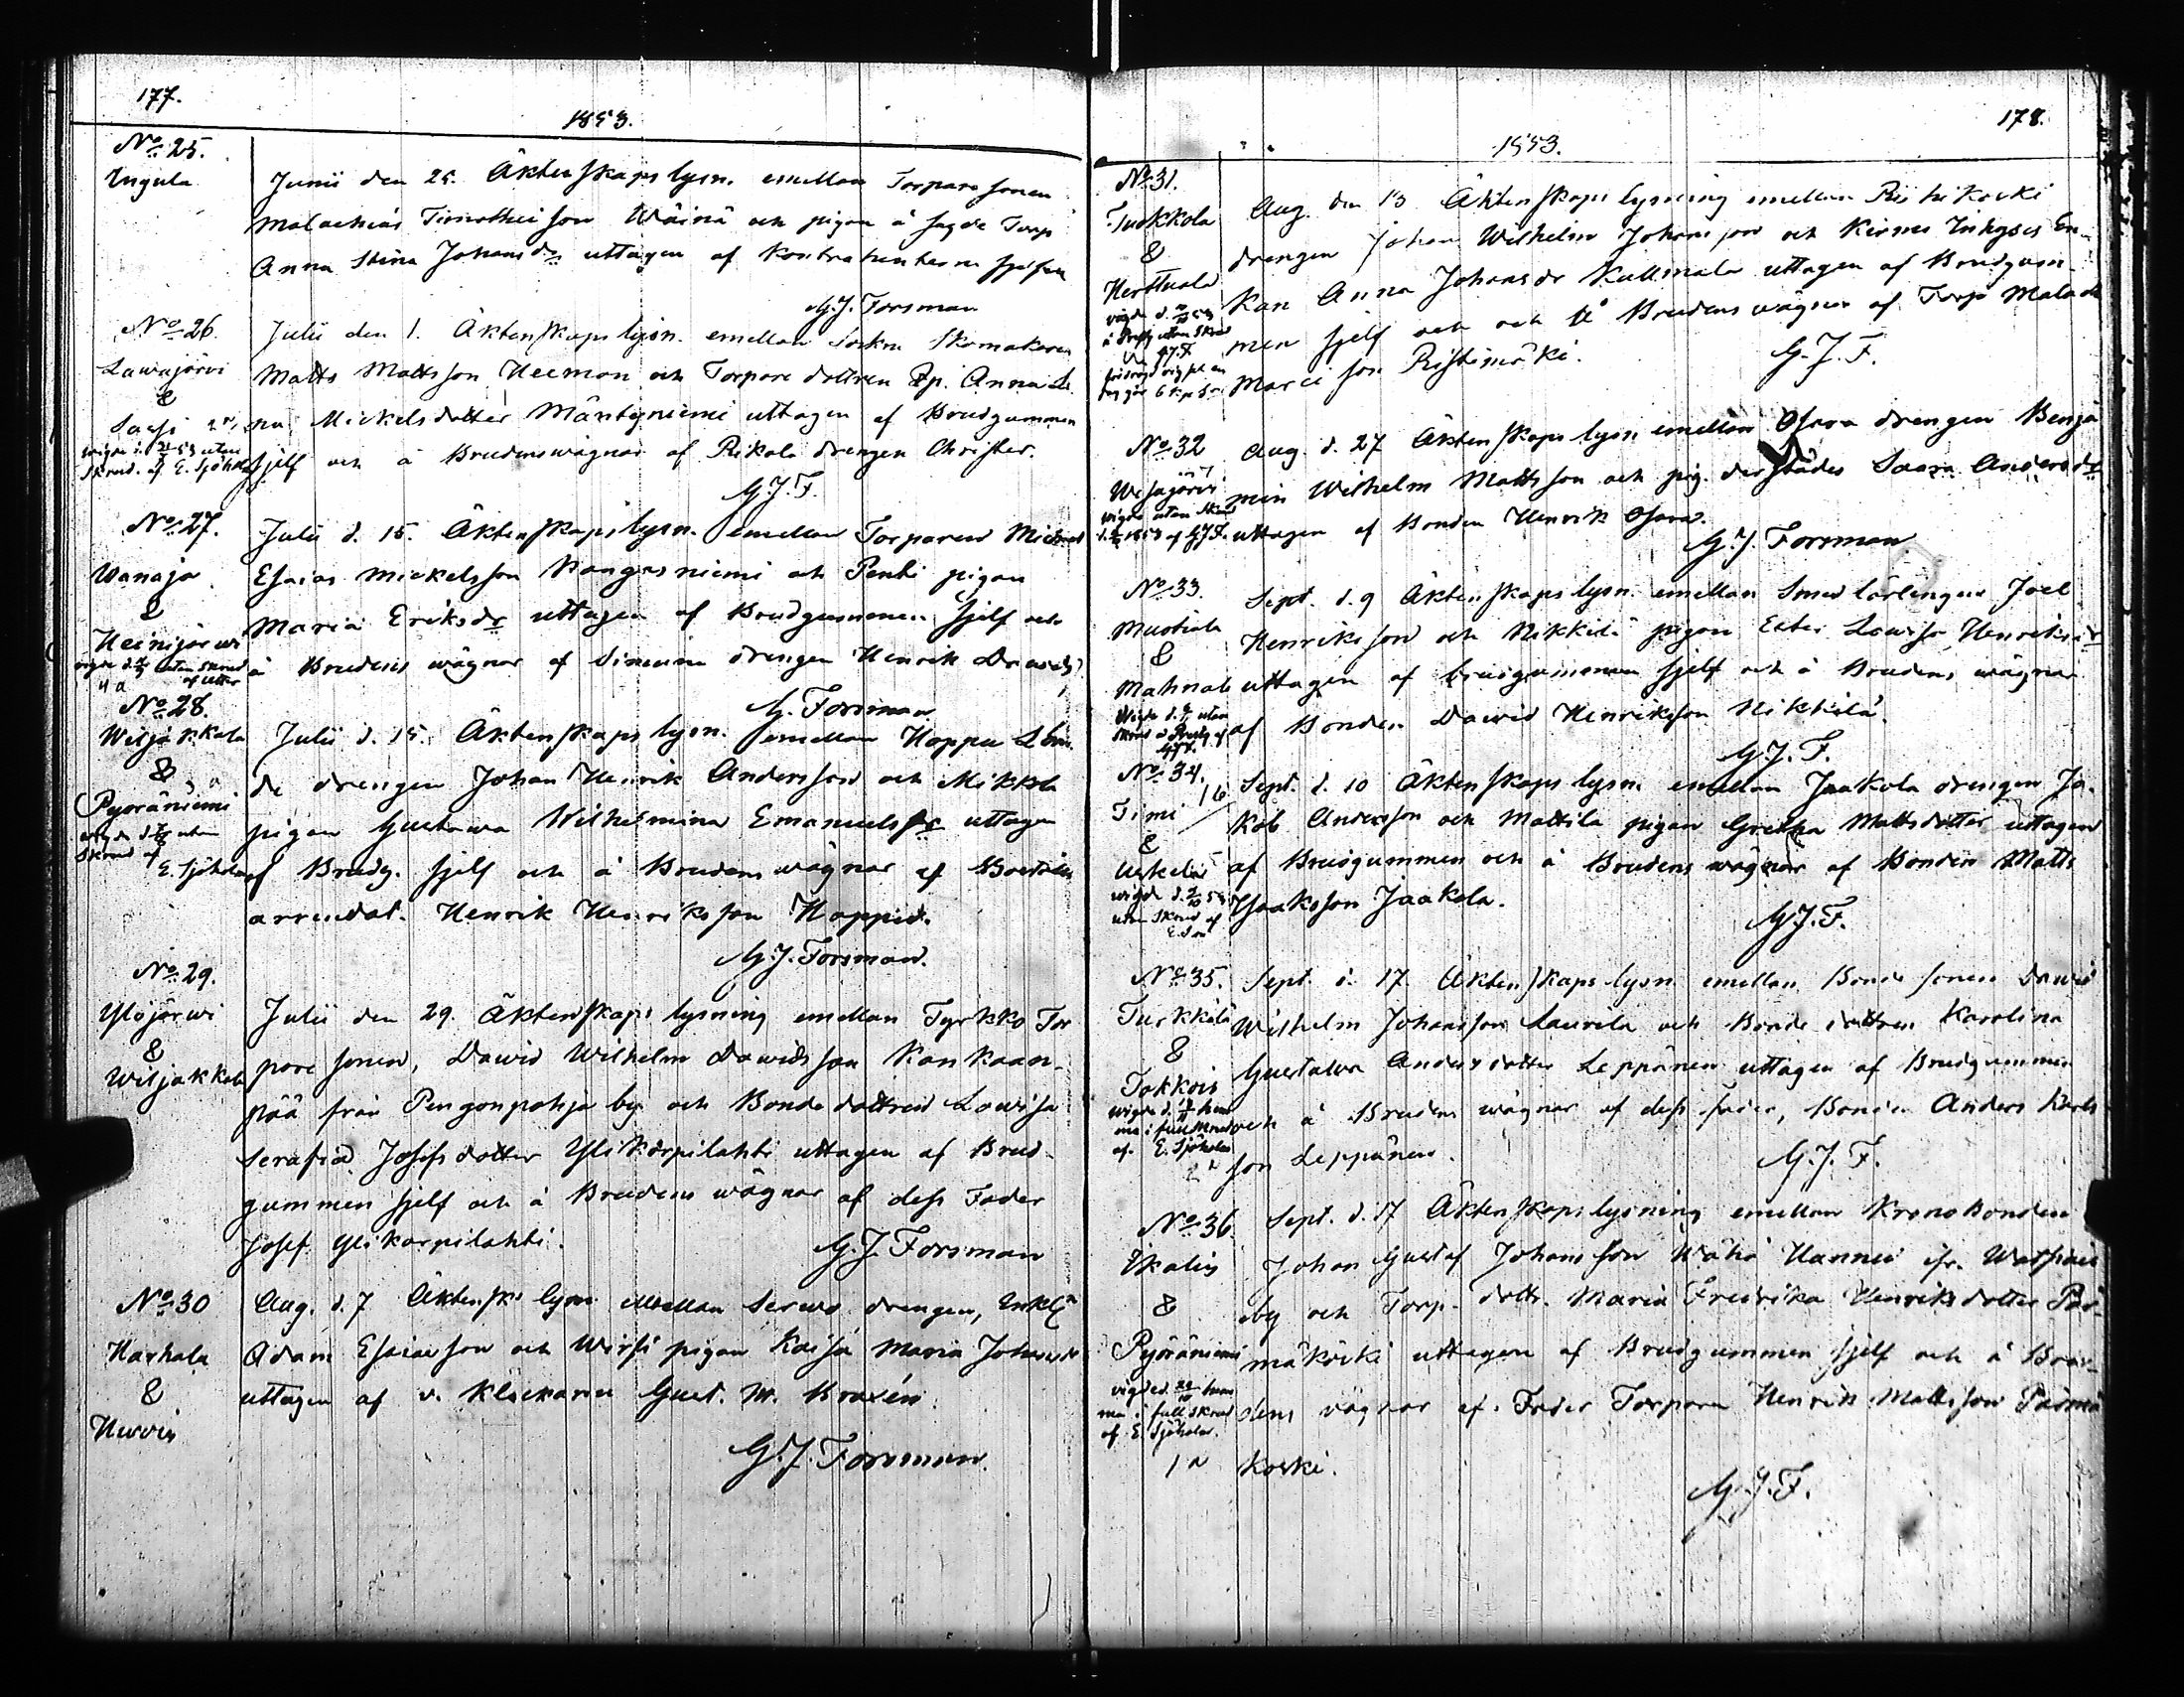 177.
1853.
No. 25.
Ingula
Junii den 25. Äktenskaps lysn. emellan Torpare sonen
Malachias Timotheison Wäinä och pigan å sagde Torp
Anna Stina Johansdr uttagen af Kontrahenterne sjelfva
G. J. Forsman
No. 26.
Lawajärvi
&
Sasji
wigde d. utan
skrud. af E. Sjöh
Julii den 1. Äktenskaps lysn. emellan Sockne Skomakaren
Matts Mattsson Heeman och Torpare dottren Anna Le
na Mickelsdotter Mäntyniemi uttagen af Brudgummen
sjelf och å Brudens wägnar af Rikala drengen Christer.
G. J. F.
No. 27.
Wanaja
&
Heinijärwi
wigde utan skrud
af
Julii d. 15. Äktenskaps lysn. emellan Torparen Michael
Esaias Mickelsson Kangasniemi och Penti pigan
Maria Eriksdr uttagen af Brudgummen sjelf och
å Brudens wägnar af drengen Henrik Davids
G. Forsman
No. 28.
Wiljakkala
&
Pyöräniemi
wigde utan
skrud af
E. Sjöholm
Julii d. 15. Äktenskaps lysn. emellan Hoppu
de drengen Johan Henrik Andersson och Mikkola
pigan Gustawa Wilhelmina Emanuelsdr uttagen
af Brudg. sjelf och å Brudens wägnar af
arrendat. Henrik Henriksson Hoppu.
G. J. Forsman.
No. 29.
Ylöjärwi
&
Wiljakkala
Julii den 29. Äktenskaps lysning emellan Tyrkkö Tor
pare sonen, Dawid Wilhelm Dawidsson Kankaan-
pää från Pengonpohja by och Bonde dottren Lowisa
Serafia Josefsdotter Ylikorpilahti uttagen af Brud-
gummen sjelf och å Brudens wägnar af dess Fader
Josef Ylikorpilahti.
G. J. Forsman
No. 30
Harhala
&
Hirvis
Aug. d. 7 Äktensk. lysn. emellan drengen,
Adam Esaiasson och Wirsi pigan Kaisa Maria Johansdr
uttagen af v. Klockaren Gust. W. Braxén.
G. J. Forsman.
178.
1853.
No. 31.
Tuokkola
&
Herttuala
Aug. den 13 Äktenskaps lysning emellan Ristikoski
drengen Johan Wilhelm Johansson och En-
kan Anna Johansdr Kullmala uttagen af Brudgum-
men sjelf och å Brudens wägnar af Torp Malach
Marci son Ristimäki.
G. J. F.
No. 32
Wesajärvi
wigde utan skrud
1853 af G. J. F.
Aug. d. 27 Äktenskaps lysn emellan Osara drengen Benja
min Wilhelm Mattsson och pig. derstädes Saara Andersdr
uttagen af Bonden Henrik Osara.
G. J. Forsman
No. 33.
Mustiala
&
Mahnala
wigde utan
skrud
Sept. d. 9 Äktenskaps lysn. emellan Smed lärlingen Joel
Henriksson och Nikkilä pigan Ester Lowisa Henriksdr
uttagen af brudgummen sjelf och å Brudens wägnar
af Bonden Dawid Henriksson Nikkilä.
G. J. F.
No. 34.
Timi
&
Uskela
wigde
utan skrud af
Sept. d. 10 Äktenskaps lysn. emellan Jaakola drengen Ja-
kob Andersson och Mattila pigan Gretha Mattsdotter uttagen
af Brudgummen och å Brudens wägnar af Bonden Matts
Isaksson Jaakola.
G. J. F.
No. 35.
Turkkila
&
Tokkois
wigde d. hem
ma i full skrud
af E. Sjöholm
Sept. d. 17. Äktenskaps lysn. emellan Bonde sonen Dawid
Wilhelm Johansson Laurila och Bonde dottren Karolina
Gustawa Andersdotter Leppänen uttagen af Brudgummen
och å Brudens wägnar af dess fader, Bonden Anders Karls
son Leppänen.
G. J. F.
No. 36.
Ikalis
&
Pyöräniemi
vigde d. hem
ma i full skrud
af E. Sjöholm.
Sept. d. 17 Äktenskaps lysning emellan Krono Bonden
Johan Gustaf Johansson Wähä Hannu ifr.
by och Torp. dottr. Maria Fredrika Henriksdotter Pär-
mäkoski uttagen af Brudgummen sjelf och å Bru-
dens vägnar af Fader Torparen Henrik Mattsson Pärmä
koski.
G. J. F.